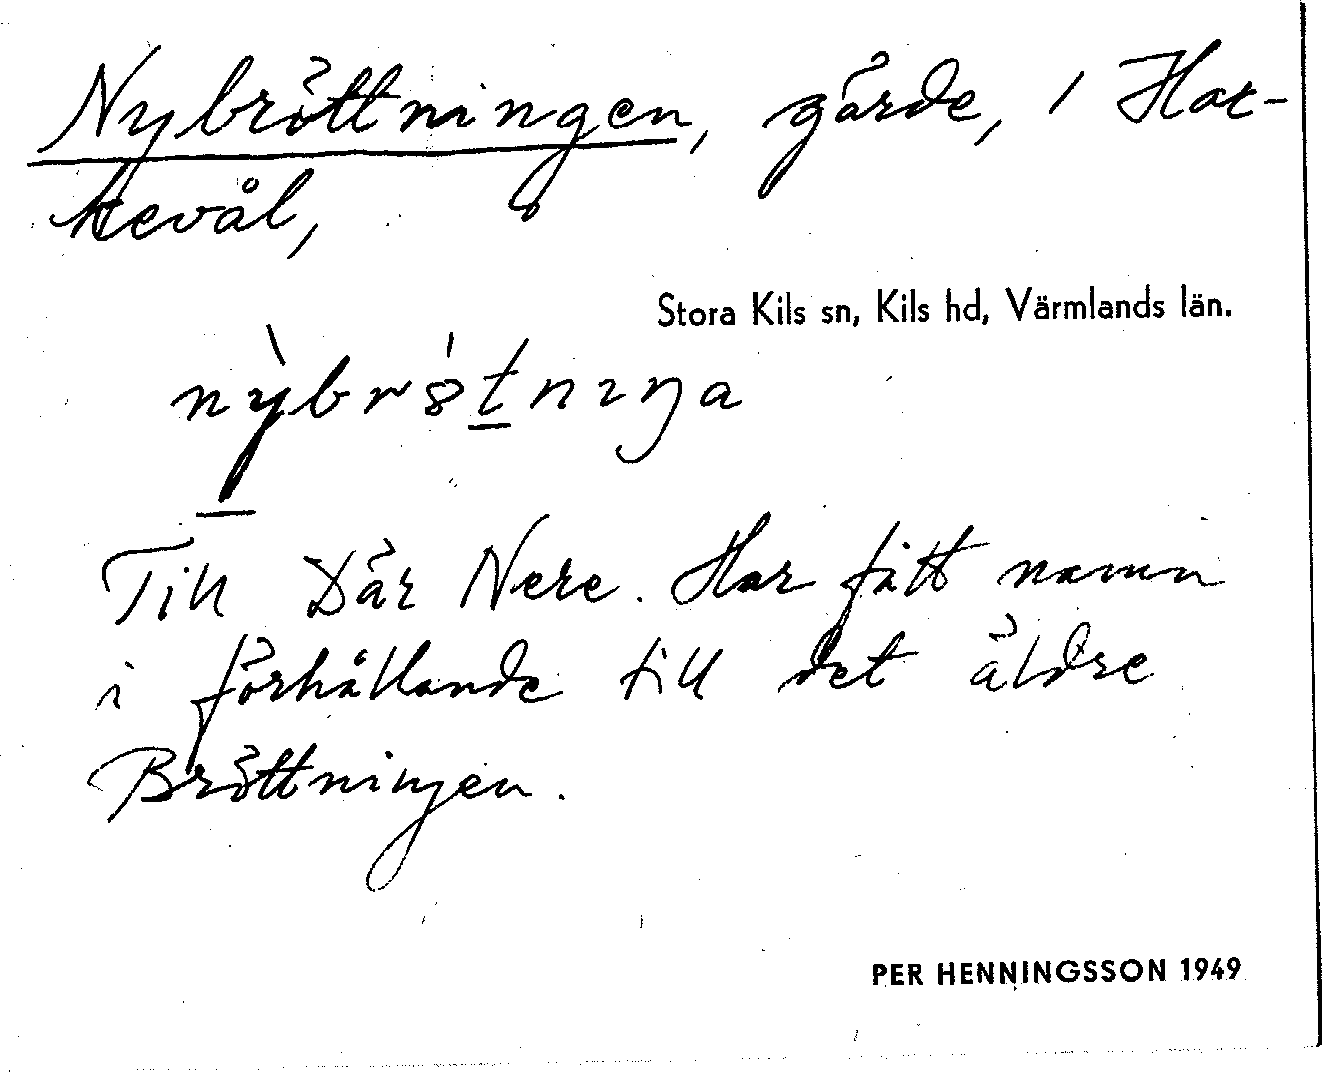 Nybröttningen, gärde, i Har-
kevål,
Stora Kils sn, Kils hd, Värmlands län.
nỳbrötnıŋa
Till Där Nere. Har fått namn
i förhållande till det äldre
Bröttningen.
PER HENNINGSSON 1949